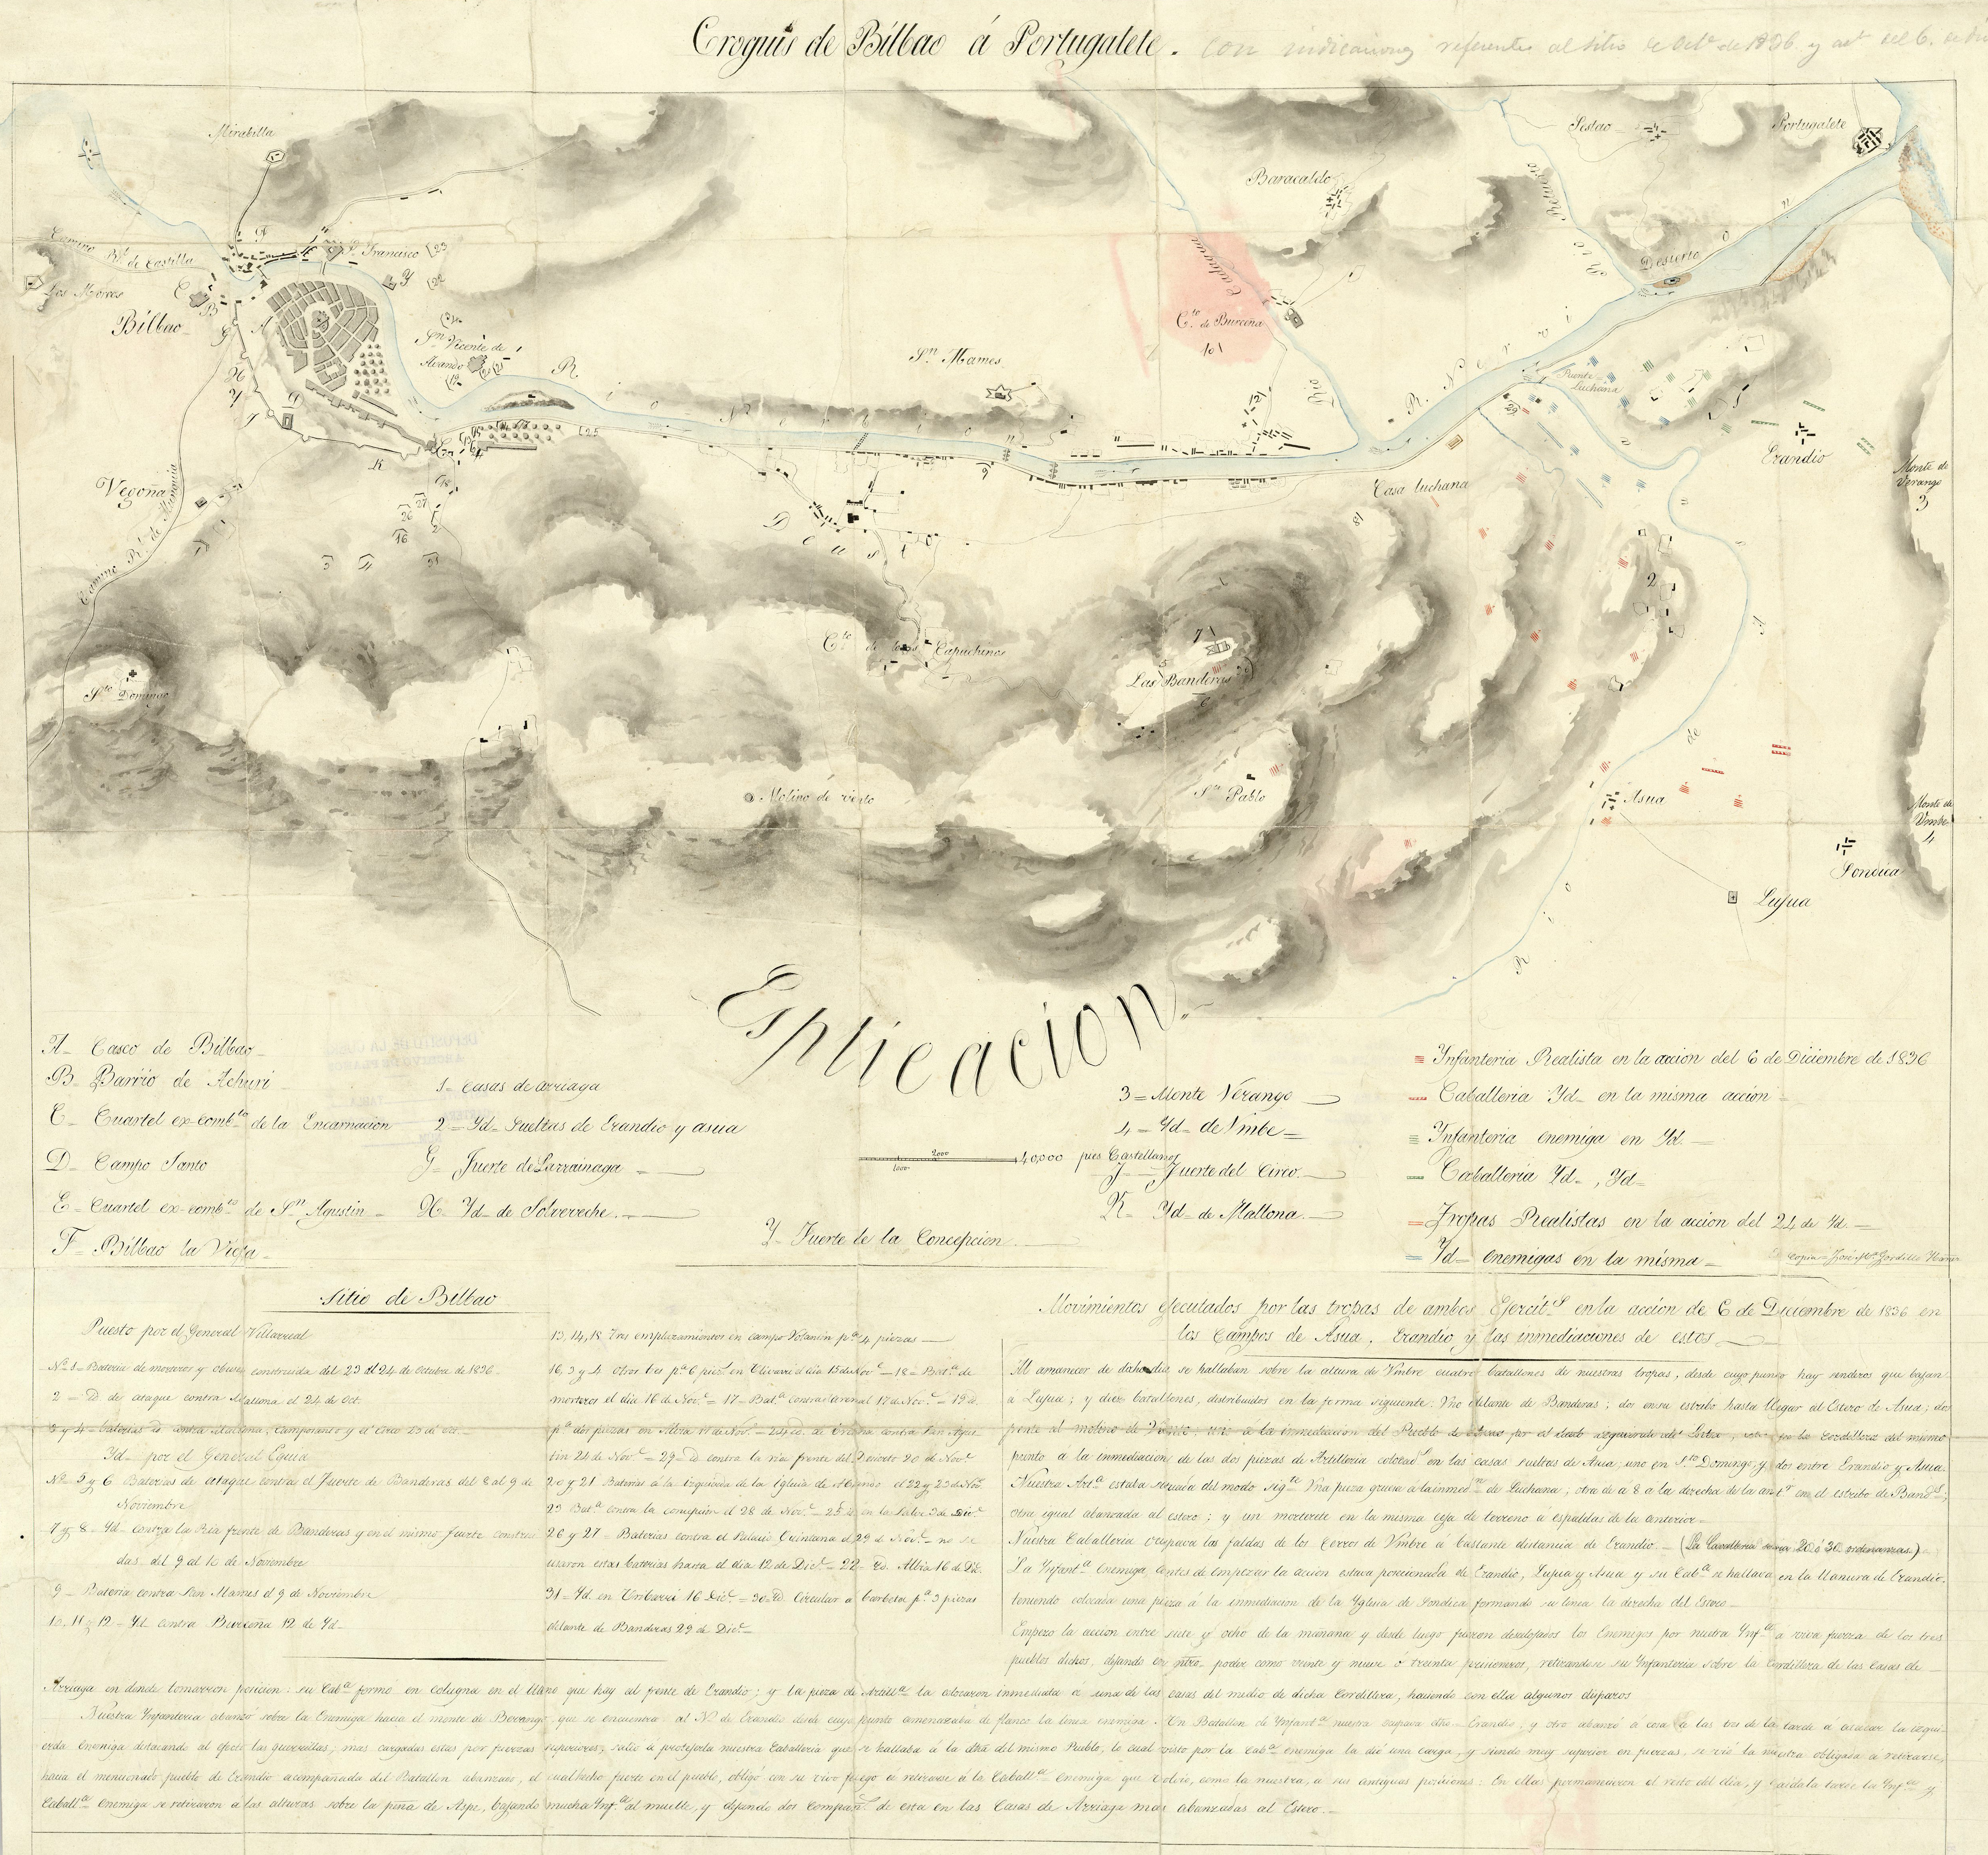 Croquis de Bilbao á Portugalete. con indicaciones referentes al sitio de Oct.e de 1836 y acc.n del 6. de Dic
Mirabilla
Sestao
Portugalete
Baracaldo
F
Sn. Francisco
23
Camino Rl. de Castilla
Los Morros
C
B
Y
22
Rio Cadagua
Rio
Desierto
Bilbao
A
G
Sn. Vicente de Abando
Cto. de Burceña
10
Sn. Mames
Puente Luchana
R. Nervion
Rio Nervion
H
Y
J
D
K
25
9
29
12
Erandio
Casa Luchana
Monte de Verango
3
Vegoña
Camino Rl. de Munguia
26
27
2
16
3
4
31
Deusto
18
2
Cto. de los Capuchinos
7
Las Banderas
Sto. Domingo
Molino de viento
Sn. Pablo
Asua
Rio de Asua
Monte de Vmbe
4
Sondica
Lujua
Esplicacion.
A= Casco de Bilbao
B= Barrio de Achuri
C= Cuartel ex-combto. de la Encarnacion
D= Campo Santo
E= Cuartel ex-combto. de Sn. Agustin
F= Bilbao la Vieja
1= Casas de Arriaga
2= Yd= Sueltas de Erandio y Asua
G= Fuerte de Larrainaga
H= Yd= de Solveveche.
Y= Fuerte de la Concepcion
3= Monte Verango
4= Yd= de Vmbe
1000 2000 40,000 pies Castellanos
J= Fuerte del Circo.
K= Yd= de Mallona.
Infanteria Realista en la accion del 6 de Diciembre de 1836
Caballeria Yd= en la misma accion
Infanteria enemiga en Yd.
Caballeria Yd=, Yd=
Tropas Realistas en la accion del 24 de Yd.
Yd= enemigas en la misma
Es copia= José Ma. Gordillo
Sitio de Bilbao
Puesto por el General Villarreal
No. 1= Bateria de morteros y obuses construida del 23 al 24 de Octubre de 1836.
2 = Yd. de ataque contra Mallona el 24 de Oct.
3 y 4= baterias Yd. contra Mallona, Camposanto y el Circo 25 de Oct.
Yd= por el General Eguia
No= 5 y 6 Baterias de ataque contra el Fuerte de Banderas del 8 al 9 de
Noviembre
7 y 8= Yd= contra la Ria frente de Banderas y en el mismo fuerte construi
das del 9 al 10 de Noviembre
9= Bateria contra San Mames el 9 de Noviembre
10, 11 y 12= Yd. contra Burceña 12 de Yd=
13, 14, 18 Tres emplazamientos en campo Volantin pa. 4 piezas
16, 3 y 4 otros tres pa. 6 piezs. en Vlivarri el dia 15 de Nove.= 18= Bata. de
morteros el dia 16 de Nove.= 17= Bata. contra Arenal 17 de Nove.= 19 d.
pa. dos piezas en Albia 17 de Nove.= 24 d. de brecha contra San Agus
tin 24 de Nove.= 29 d contra la ria frente del Desierto 20 de Nove.
20 y 21 Baterias á la izquierda de la Iglesia de Abando el 22 y 23 de Nove.
23 Bata. contra la concepcion el 28 de Nove.= 25 d en la Salve 3 de Dice.
26 y 27= Baterias contra el Palacio Quintana el 29 de Nove.= no se
usaron estas baterias hasta el dia 12 de Dice.= 22= Yd. Albia 16 de Dic.
31= Yd. en Vribarri 16 Dice.= 30= Yd. Circular a barbeta pa. 3 piezas
delante de Banderas 29 de Dice.
Movimientos ejecutados por las tropas de ambos Ejercits. en la accion de 6 de Diciembre de 1836 en
los Campos de Asua, Erandio y las inmediaciones de estos
Al amanecer de dicho dia se hallaban sobre la altura de Vmbre cuatro batallones de nuestras tropas, desde cuyo punto hay senderos que bajan
a Lujua; y diez batallones, distribuidos en la forma siguiente: Vno delante de Banderas; dos en su estribo hasta llegar al Estero de Asua; dos
frente al molino de Viento; uno á la inmediacion del Pueblo de por el lado izquierdo del por la cordillera del mismo
punto á la inmediacion de las dos piezas de Artilleria colocads. en las casas sueltas de Asua, uno en Sto. Domingo, y dos entre Erandio y Asua.
Nuestra Arta. estaba situada del modo sigte. Vna pieza gruesa á la inmedn. de Luchana; otra de a 8 a la derecha de la antr. en el estribo de Bands.;
otra igual abanzada al estero; y un morterete en la misma ceja de terreno á espaldas de la anterior.
Nuestra Caballeria ocupava las faldas de los Cerros de Vmbre á bastante distancia de Erandio.= (La Cavalleria seria 20 ó 30 ordenanzas)
La Ynfanta. Enemiga, antes de empezar la accion estava posicionada de Erandio, Lujua y Asua y su Caba. se hallava en la llanura de Erandio,
teniendo colocada una pieza á la inmediacion de la Yglesia de Sondica formando su linea la derecha del Estero
Empezo la accion entre siete y ocho de la mañana y desde luego fueron desalojados los Enemigos por nuestra Ynfa. a viva fuerza de los tres
pueblos dichos, dejando en ntro. poder como veinte y nueve ó treinta prisioneros, retirandose su Ynfanteria sobre la Cordillera de las Casas de
Arriaga en donde tomarron posicion: su Caba. formo en coluna en el llano que hay al frente de Erandio; y la pieza de Artilla. la colocaron inmediata á una de las casas del medio de dicha Cordillera, haciendo con ella algunos disparos
Nuestra Ynfanteria abanzó sobre la Enemiga hacia el monte de Berango que se encuentra al N. de Erandio desde cuyo punto amenazaba de flanco la linea enemiga. Vn Batallon de Ynfanta. nuestra ocupava dho. Erandio; y otro abanzó á cosa de las tres de la tarde á atacar la izqui
erda Enemiga destacando al efecto las guerrillas, mas cargadas estas por fuerzas superiores; salió á protejerla nuestra Caballeria que se hallaba á la dha. del mismo Pueblo, lo cual visto por la caba. enemiga la dió una carga, y siendo muy superior en fuerzas, se vió la nuestra obligada á retirarse,
hacia el mencionado pueblo de Erandio acompañada del Batallon abanzado, el cual hecho fuerte en el pueblo, obligó con su vivo fuego á retirarse á la Caballa. Enemiga que volvio, como la nuestra, a sus antiguas posiciones: En ellas permanecieron el resto del dia, y caida la tarde la Ynfa. y
Caballa. Enemiga se retiraron a las alturas sobre la peña de Aspe, bajando mucha Ynfa. al muelle, y dejando dos compañs. de esta en las Casas de Arriaga mas abanzadas al Estero.